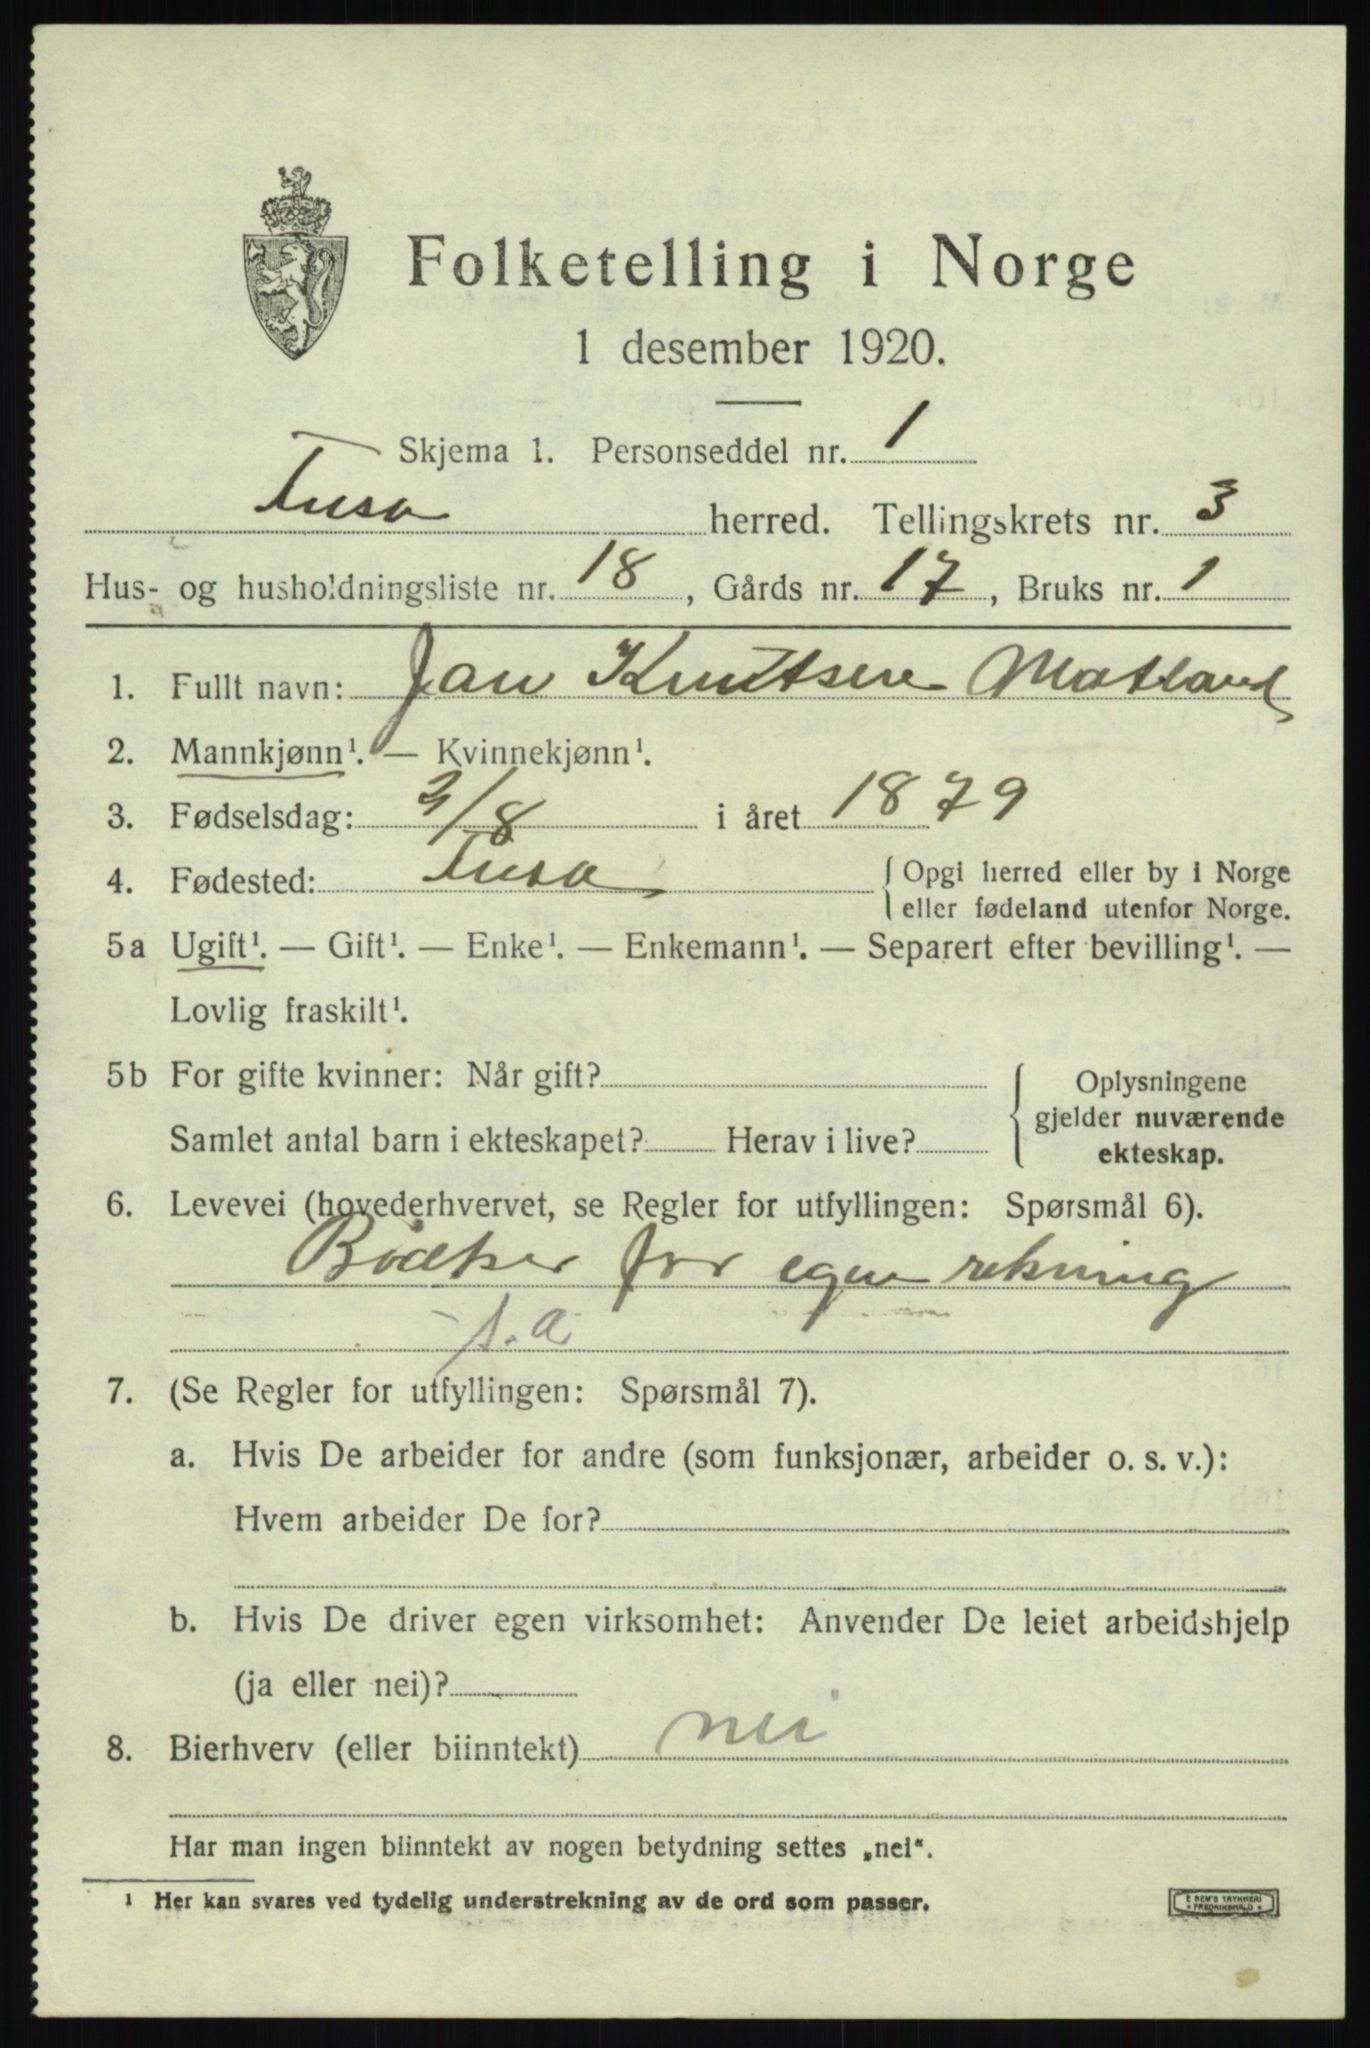 Folketelling i Norge
1 desember 1920.
Skjema 1. Personseddel nr. 1
Fusa herred. Tellingskrets nr. 3
Hus- og husholdningsliste nr. 18, Gårds nr. 17, Bruks nr. 1
1. Fullt navn: Jan Knutsen Matland
2. Mannkjønn¹. — Kvinnekjønn¹.
3. Fødselsdag: 3/8 i året 1879
4. Fødested: Fusa { Opgi herred eller by i Norge
eller fødeland utenfor Norge.
5a Ugift¹. — Gift¹. — Enke¹. — Enkemann¹. — Separert efter bevilling¹. —
Lovlig fraskilt¹.
5b For gifte kvinner: Når gift? { Oplysningene
gjelder nuværende
Samlet antal barn i ekteskapet? Herav i live? ekteskap.
6. Levevei (hovederhvervet, se Regler for utfyllingen: Spørsmål 6).
Bødker for egen rekning
s.a
7. (Se Regler for utfyllingen: Spørsmål 7).
a. Hvis De arbeider for andre (som funksjonær, arbeider o. s. v.):
Hvem arbeider De for?
b. Hvis De driver egen virksomhet: Anvender De leiet arbeidshjelp
(ja eller nei)?
8. Bierhverv (eller biinntekt) nei
Har man ingen biinntekt av nogen betydning settes „nei“.
¹ Her kan svares ved tydelig understrekning av de ord som passer.
E SEM'S TRYKKERI
FREDRIKSHALD